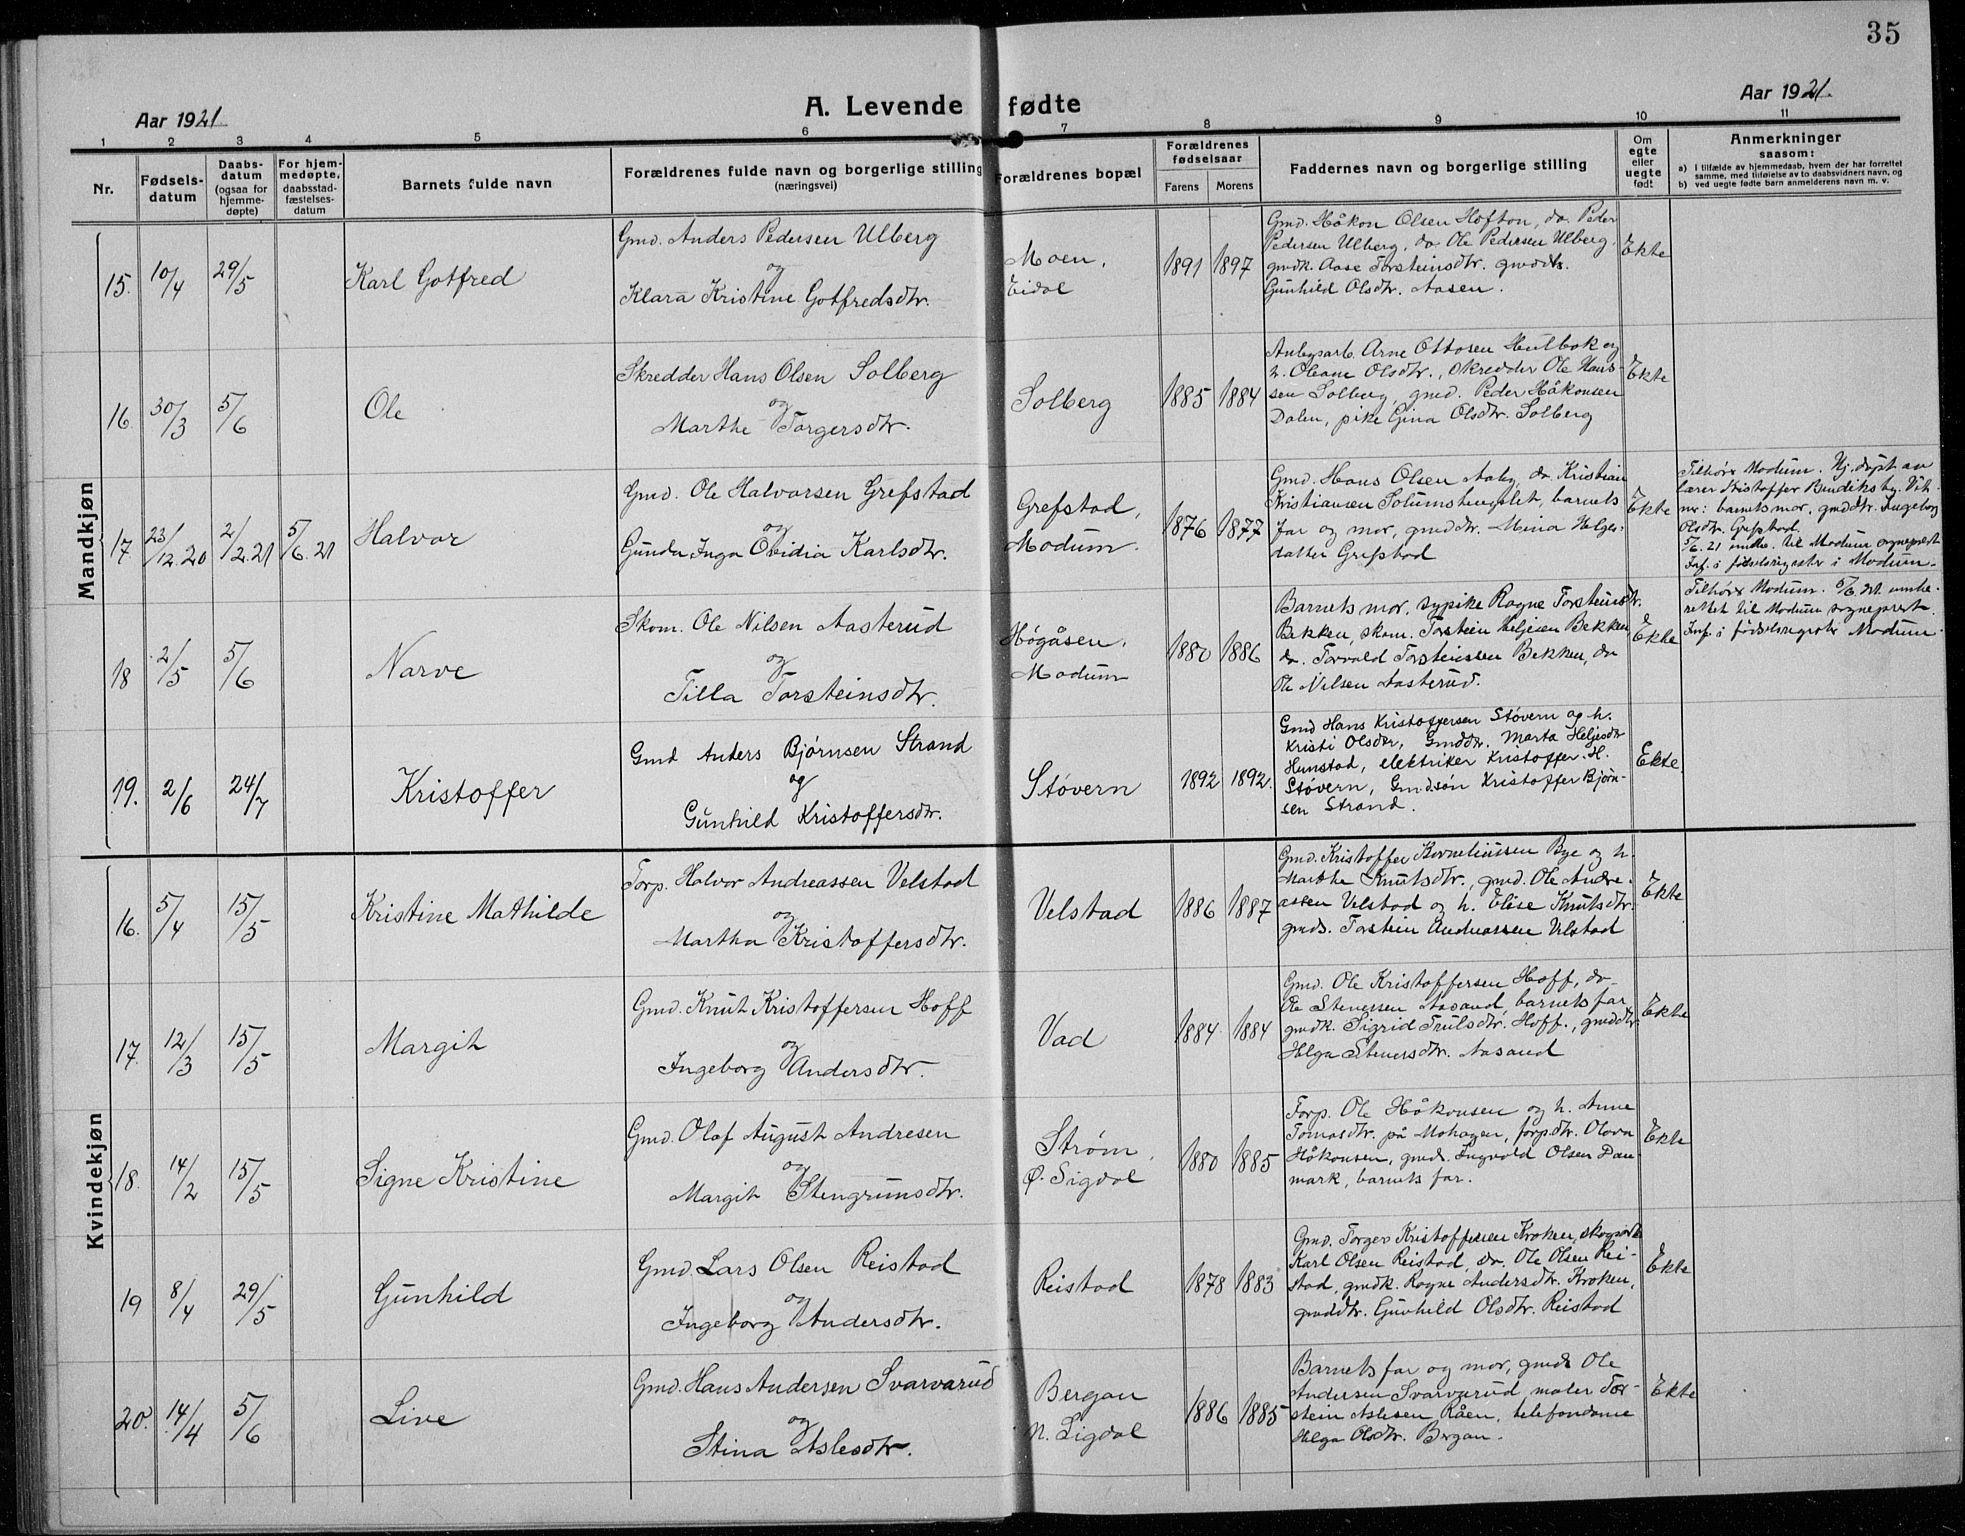 35
Aar 1921
A. Levende fødte
Aar 1921.
1 2 3 4 5 6 7 8 9 10 11
Nr.
Fødsels-
datum
Daabs-
datum
(ogsaa for
hjemme-
døpte)
For hjem-
medøpte,
daabsstad-
fæstelses-
datum
Barnets fulde navn
Forældrenes fulde navn og borgerlige stilling
(næringsvei)
Forældrenes bopæl
Forældrenes
fødselsaar
Farens Morens
Faddernes navn og borgerlige stilling
Om
egte
eller
uegte
født
Anmerkninger
saasom:
a) I tilfælde av hjemmedaab, hvem der har forrettet
samme, med tilføielse av to daabsvidners navn, og
b) ved uegte fødte barn anmelderens navn m. v.
Mandkjøn
15. 10/4 29/5
Karl Gotfred
Gmd. Anders Pedersen Ulberg
og
Klara Kristine Gotfredsdtr.
Moen,
Eidal
1891 1897
Gmd. Håkon Olsen Hofton, do. Peder
Pedersen Ulberg, do Ole Pedersen Ulberg,
gmdk. Aase Torsteinsdtr. gmddtr.
Gunhild Olsdtr. Aasen.
Ekte
16. 30/3 5/6
Ole
Skredder Hans Olsen Solberg
og
Marthe Torgersdtr.
Solberg
1885 1884
Anlegsarb. Arne Ottosen Hulbak og
h. Oleane Olsdtr., skredder Ole Hans-
sen Solberg, gmd. Peder Håkonsen
Dalen, pike Gina Olsdtr. Solberg
Ekte
17. 23/12.20 2/2.21 5/6.21
Halvor
Gmd. Ole Halvorsen Grefstad
og
Gunda Inga Ovidia Karlsdtr.
Grefstad,
Modum.
1876 1877
Gmd. Hans Olsen Aaby, do Kristian
Kristiansen Solumshengslet, barnets
far og mor, gmddtr. Mina Helges-
datter Grefstad
Ekte
Tilhører Modum. Hj.døpt av
lærer Kristoffer Bendiksby. Vit-
ner: barnets mor, gmddtr. Ingeborg
Olsdtr. Grefstad.
5/6.21 underr. til Modum sogneprest
Inf. i fødselsregister i Modum.
18 2/5 5/6
Narve
Skom. Ole Nilsen Aasterud
og
Tilla Torsteinsdtr.
Høgåsen,
Modum
1880 1886
Barnets mor, sypike Ragne Torsteinsdtr.
Bekken, skom. Torstein Heljesen Bekken,
do. Torvald Torsteinssen Bekken, do
Ole Nilsen Aasterud.
Ekte
Tilhører Modum. 5/6.21 underr-
rettet til Modum sogneprest.
Inf. i fødselsregister Modum.
19. 2/6 24/7
Kristoffer
Gmd Anders Bjørnsen Strand
og
Gunhild Kristoffersdtr.
Støvern
1892 1892.
Gmd Hans Kristoffersen Støvern og h.
Kristi Olsdtr, Gmddtr. Marta Heljesdtr
Hunstad, elektriker Kristoffer H.
Støvern, Gmdsøn Kristoffer Bjørn-
sen Strand.
Ekte.
Kvindekjøn
16. 5/4 15/5
Kristine Mathilde
Torp. Halvor Andreassen Velstad
og
Martha Kristoffersdtr.
Velstad
1886 1887
Gmd. Kristoffer Korneliussen Bye og h.
Marthe Knutsdtr., gmd. Ole Andre-
assen Velstad og h. Elise Knutsdtr.
gmds. Torstein Andreassen Velstad
Ekte
17. 12/3 15/5
Margit
Gmd. Knut Kristoffersen Hoff
og
Ingeborg Andersdtr.
Vad
1884 1884
Gmd. Ole Kristoffersen Hoff, do
Ole Stenersen Aasand, barnets far,
gmdk. Sigrid Trulsdtr. Hoff., gmddtr
Helga Stenersdtr. Aasand
Ekte
18. 14/2 15/5
Signe Kristine
Gmd. Olaf August Andresen
og
Margit Stengrimsdtr.
Strøm,
Ø. Sigdal
1880 1885
Torp. Ole Håkonsen og h. Anne
Tomasdtr. på Mohagen, torp.dtr. Olava
Håkonsen, gmds. Ingvald Olsen Dan-
mark, barnets far.
Ekte
19 8/4 29/5
Gunhild
Gmd. Lars Olsen Reistad
og
Ingeborg Andersdtr.
Reistad
1878 1883
Gmd. Torger Kristoffersen Kroken, skogsarb
Karl Olsen Reistad, do. Ole Olsen Rei-
stad, gmdk. Ragne Andersdtr. Kroken,
gmddtr. Gunhild Olsdtr. Reistad
Ekte
20. 14/4 5/6
Live
Gmd. Hans Andersen Svarvarud
og
Stina Aslesdtr.
Bergan
N. Sigdal
1886 1885
Barnets far og mor, gmds Ole
Andersen Svarvarud, maler Tor-
stein Aslesen Råen, telefondame
Helga Olsdtr. Bergan.
Ekte